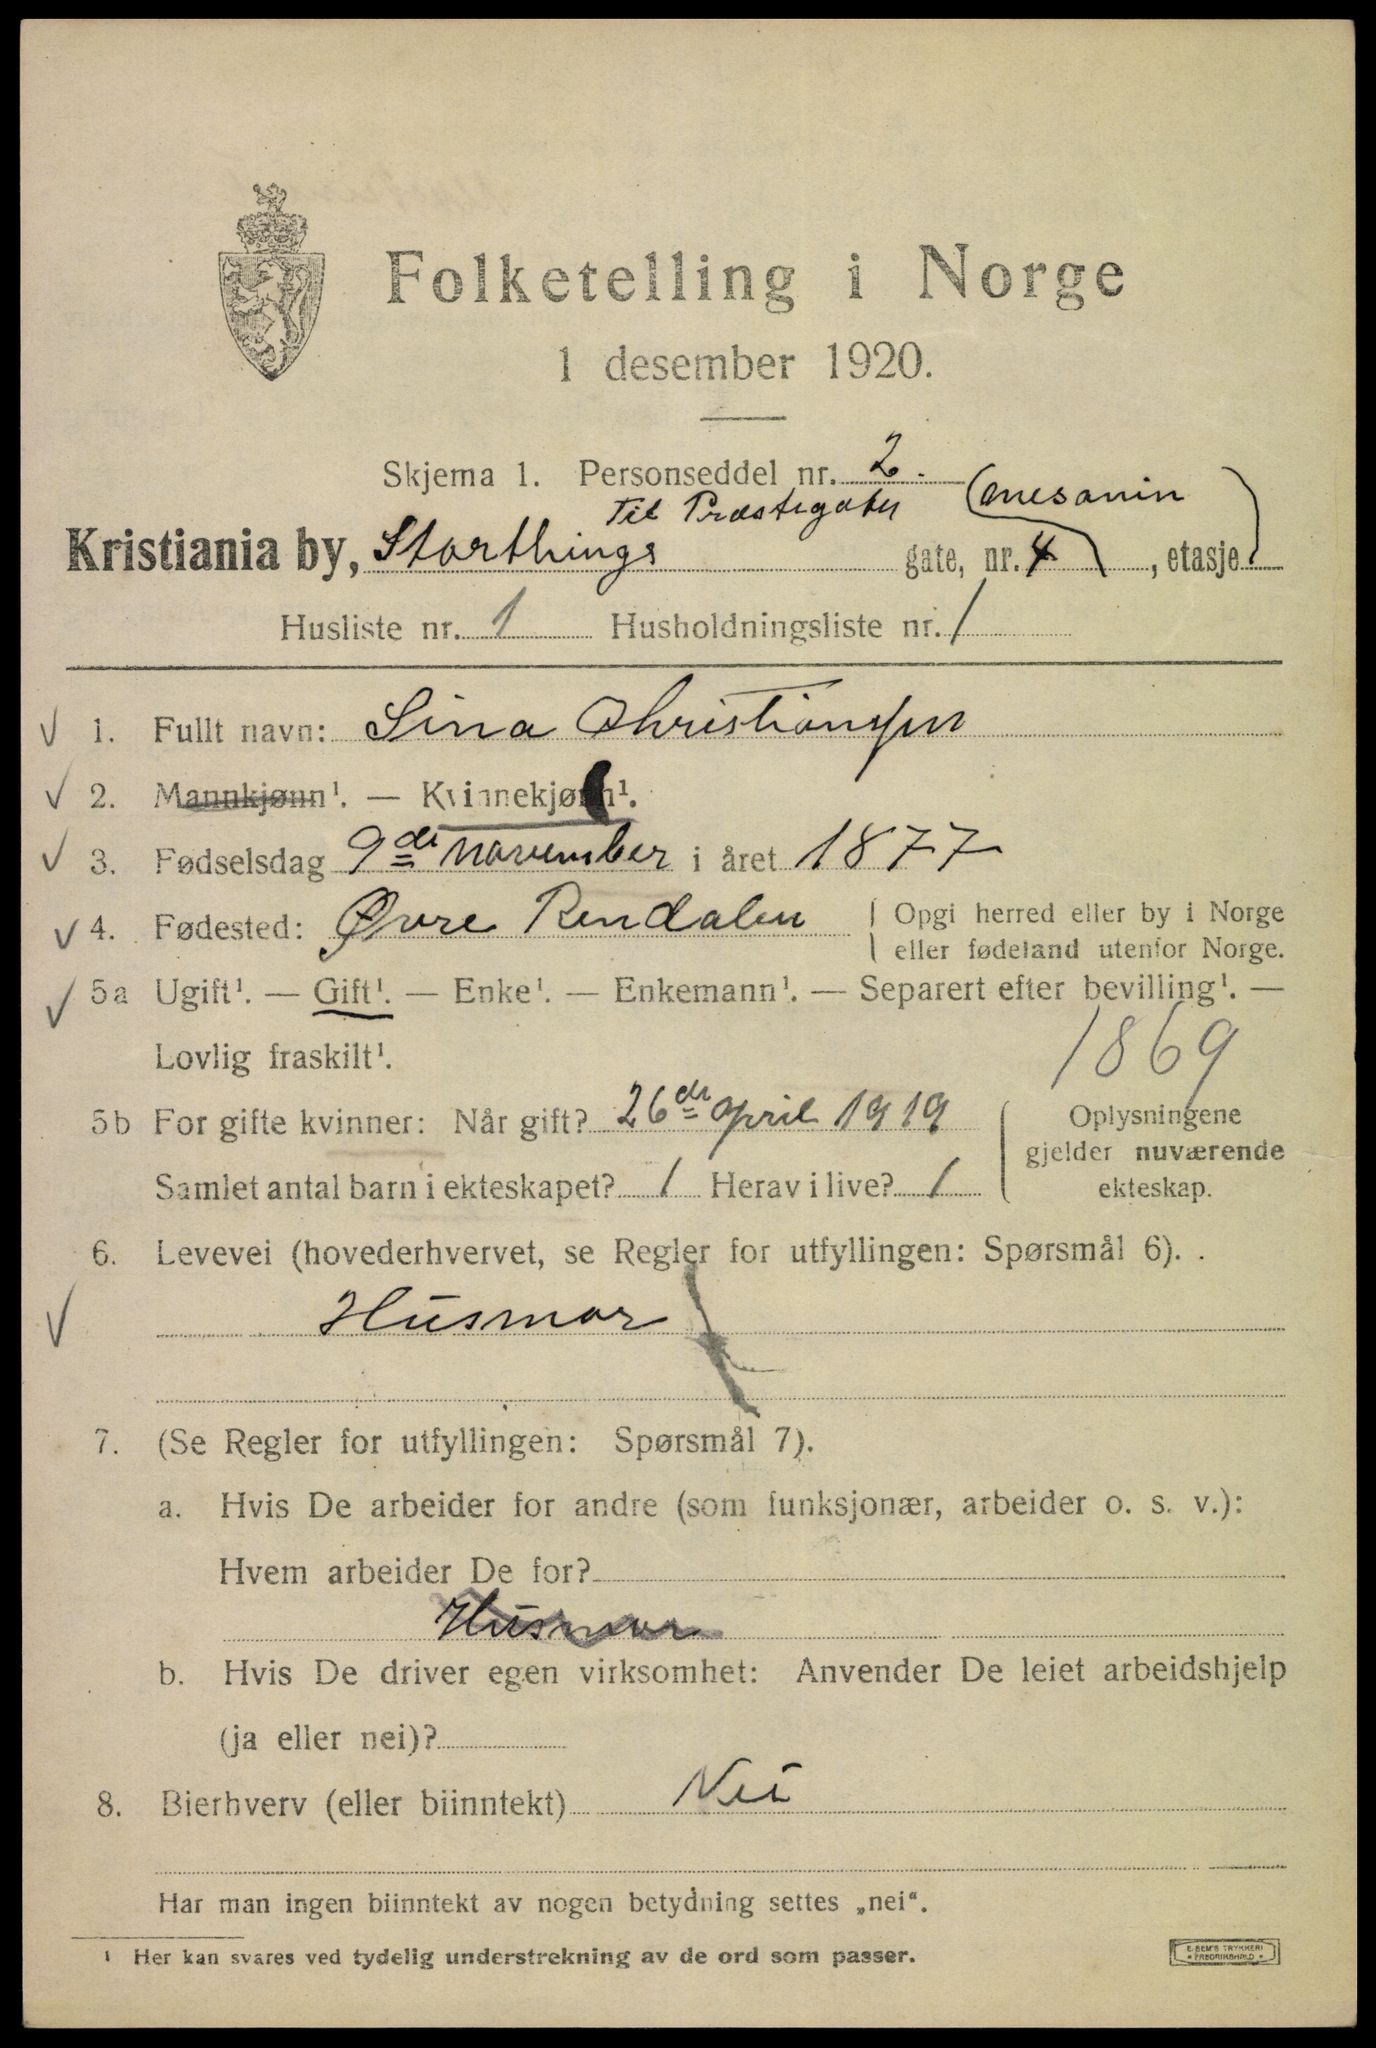 Folketelling i Norge
1 desember 1920.
Skjema 1. Personseddel nr. 2.
Til Præstegaten (mesanin)
Kristiania by, Storthings gate, nr. 4, etasje
Husliste nr. 1 Husholdningsliste nr. 1
1. Fullt navn: Lina Christiansen
2. Mannkjønn¹. — Kvinnekjønn¹.
3. Fødselsdag 9de november i året 1877
4. Fødested: Øvre Rendalen { Opgi herred eller by i Norge
eller fødeland utenfor Norge.
5a Ugift¹. — Gift¹. — Enke¹. — Enkemann¹. — Separert efter bevilling¹. —
Lovlig fraskilt¹.
1869
5b For gifte kvinner: Når gift? 26de april 1919
Samlet antal barn i ekteskapet? 1 Herav i live? 1
{ Oplysningene
gjelder nuværende
ekteskap.
6. Levevei (hovederhvervet, se Regler for utfyllingen: Spørsmål 6). .
Husmor
7. (Se Regler for utfyllingen: Spørsmål 7).
a. Hvis De arbeider for andre (som funksjonær, arbeider o. s. v.):
Hvem arbeider De for?
Husmor
b. Hvis De driver egen virksomhet: Anvender De leiet arbeidshjelp
(ja eller nei)?
8. Bierhverv (eller biinntekt) Nei
Har man ingen biinntekt av nogen betydning settes „nei“.
¹ Her kan svares ved tydelig understrekning av de ord som passer.
E. SEM'S TRYKKERI
• FREDRIKSHALD •